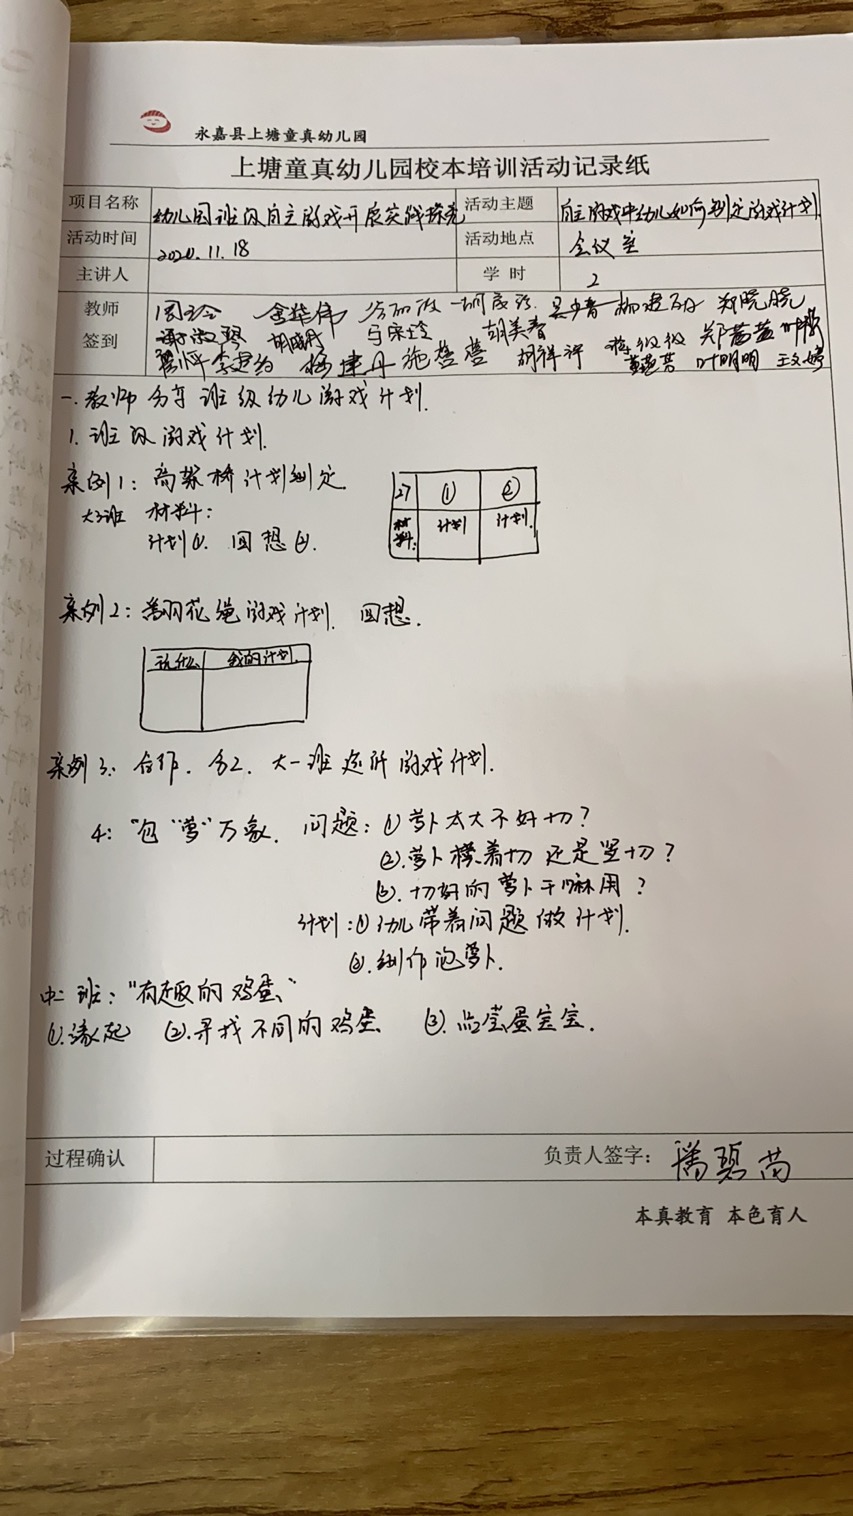 永嘉县上塘童真幼儿园
上塘童真幼儿园校本培训活动记录纸
项目名称 幼儿园班级自主游戏开展实践探究 活动主题 自主游戏中幼儿如何制定游戏计划
活动时间 2020.11.18 活动地点 会议室
主讲人 学时 2
教师 金华伟 郑晓晓
签到 胡美春
李建约 杨建丹 施莹莹 胡祥评 叶明明 王文婷
一.教师分享班级幼儿游戏计划.
1.班级游戏计划.
案例1:高架桥计划制定
大三班 材料:
计划①. 回想②.
27 ① ②
材料: 计划 计划.
案例2:翻花绳游戏计划. 回想.
玩什么 我的计划.
案例3:合作.分工.大一班 游戏计划.
4:“包“萝”万象. 问题:①萝卜太大不好切?
②.萝卜横着切还是竖切?
③.切好的萝卜干嘛用?
计划:①幼儿带着问题做计划.
②.制作泡萝卜.
中二班:“有趣的鸡蛋”
①.缘起 ②.寻找不同的鸡蛋 ③.点营蛋宝宝.
过程确认 负责人签字:潘碧苗
本真教育 本色育人